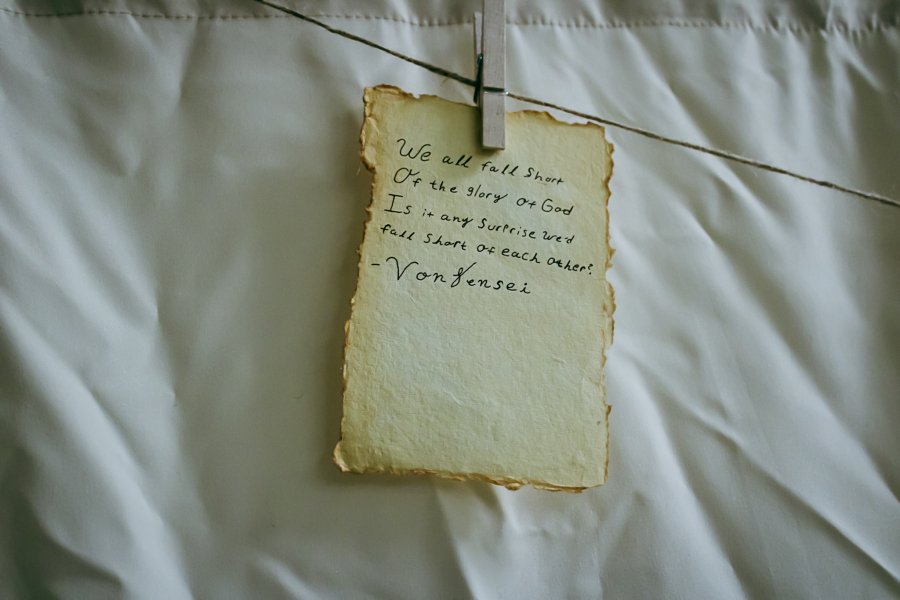 We all fall Short
Of the glory Of God
Is it any Surprise we'd
fall Short Of each Other?
- VonSensei